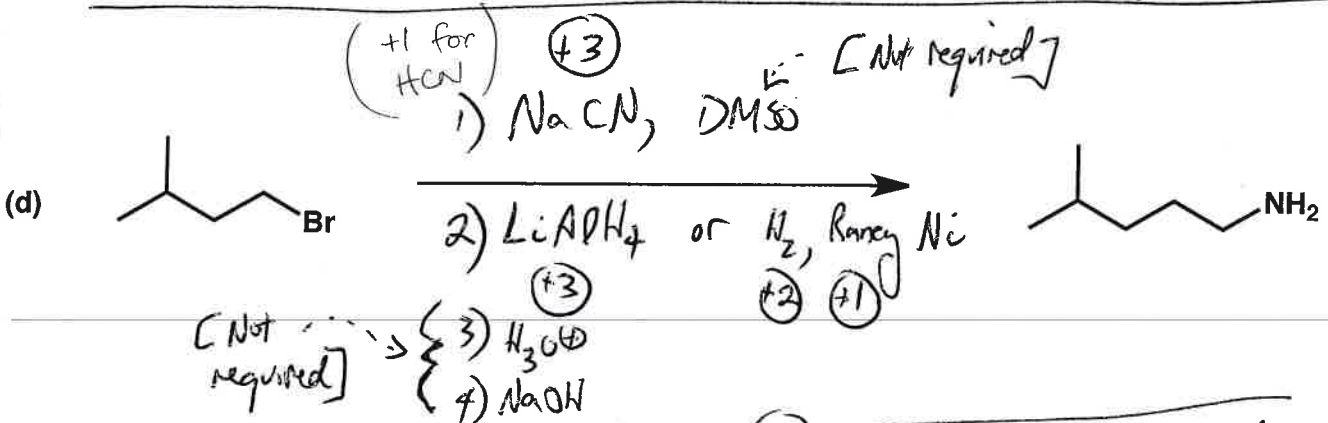 (+1 for HCN)
+3
[Not required]
1) NaCN, DMSO
(d)
Br
NH₂
2) LiAlH₄ or H₂, Raney Ni
+3
+2
+1
[Not required]
3) H₃O⊕
4) NaOH